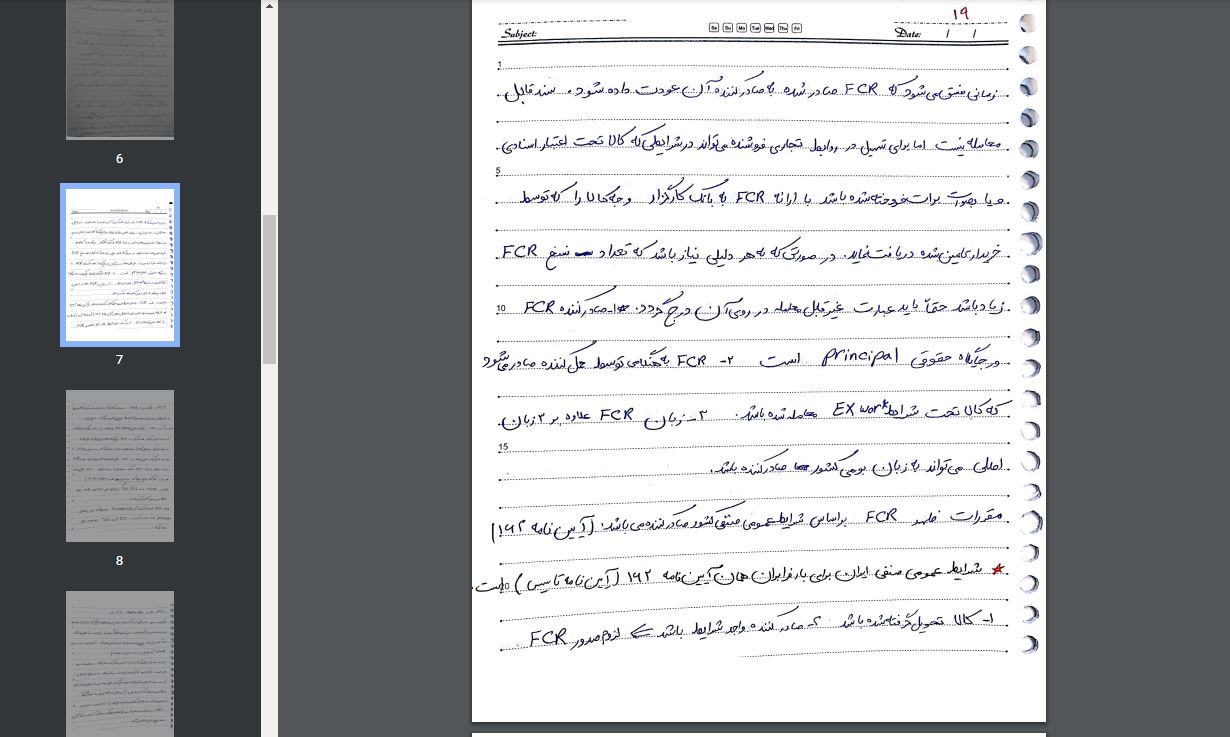 6
7
8
19
Subject:
Sa Su Mo Tue Wed Thu Fri
Date: / /
1
زمانی منتفی می‌شود که FCR صادر شده به صادر کننده آن عودت داده شود. سند قابل
معامله نیست اما برای تسهیل در روابط تجاری فروشنده می‌تواند در شرایطی که کالا تحت اعتبار اسنادی
5
و یا بصورت برات فروخته شده باشد با ارائه FCR به بانک کارگزار وجه کالا را که توسط
خریدار تامین شده دریافت نماید. در صورتی که به هر دلیلی نیاز باشد که تعداد نسخ FCR
زیاد باشد حتماً باید عبارت غیرقابل معامله در روی آن درج گردد. ۱- صادر کننده FCR
10
در جایگاه حقوقی Principal است ۲- FCR به هنگامی توسط حمل کننده صادر می‌شود
که کالا تحت شرایط EX work معامله شده باشد. ۳- زبان FCR علاوه بر ۲ زبان
15
اصلی می‌تواند به زبان بومی کشور صادر کننده باشد.
مقررات ظهر FCR براساس شرایط عمومی صنفی کشور صادر کننده می باشد. (آیین نامه ۱۹۲)
* شرایط عمومی صنفی ایران برای بارفرابران همان آیین نامه ۱۹۲ (آیین نامه تاسیس) است.
۱- کالا تحویل گرفته شده باشد ۲- صادر کننده واجد شرایط باشد ⇐ لازم صدور FCR